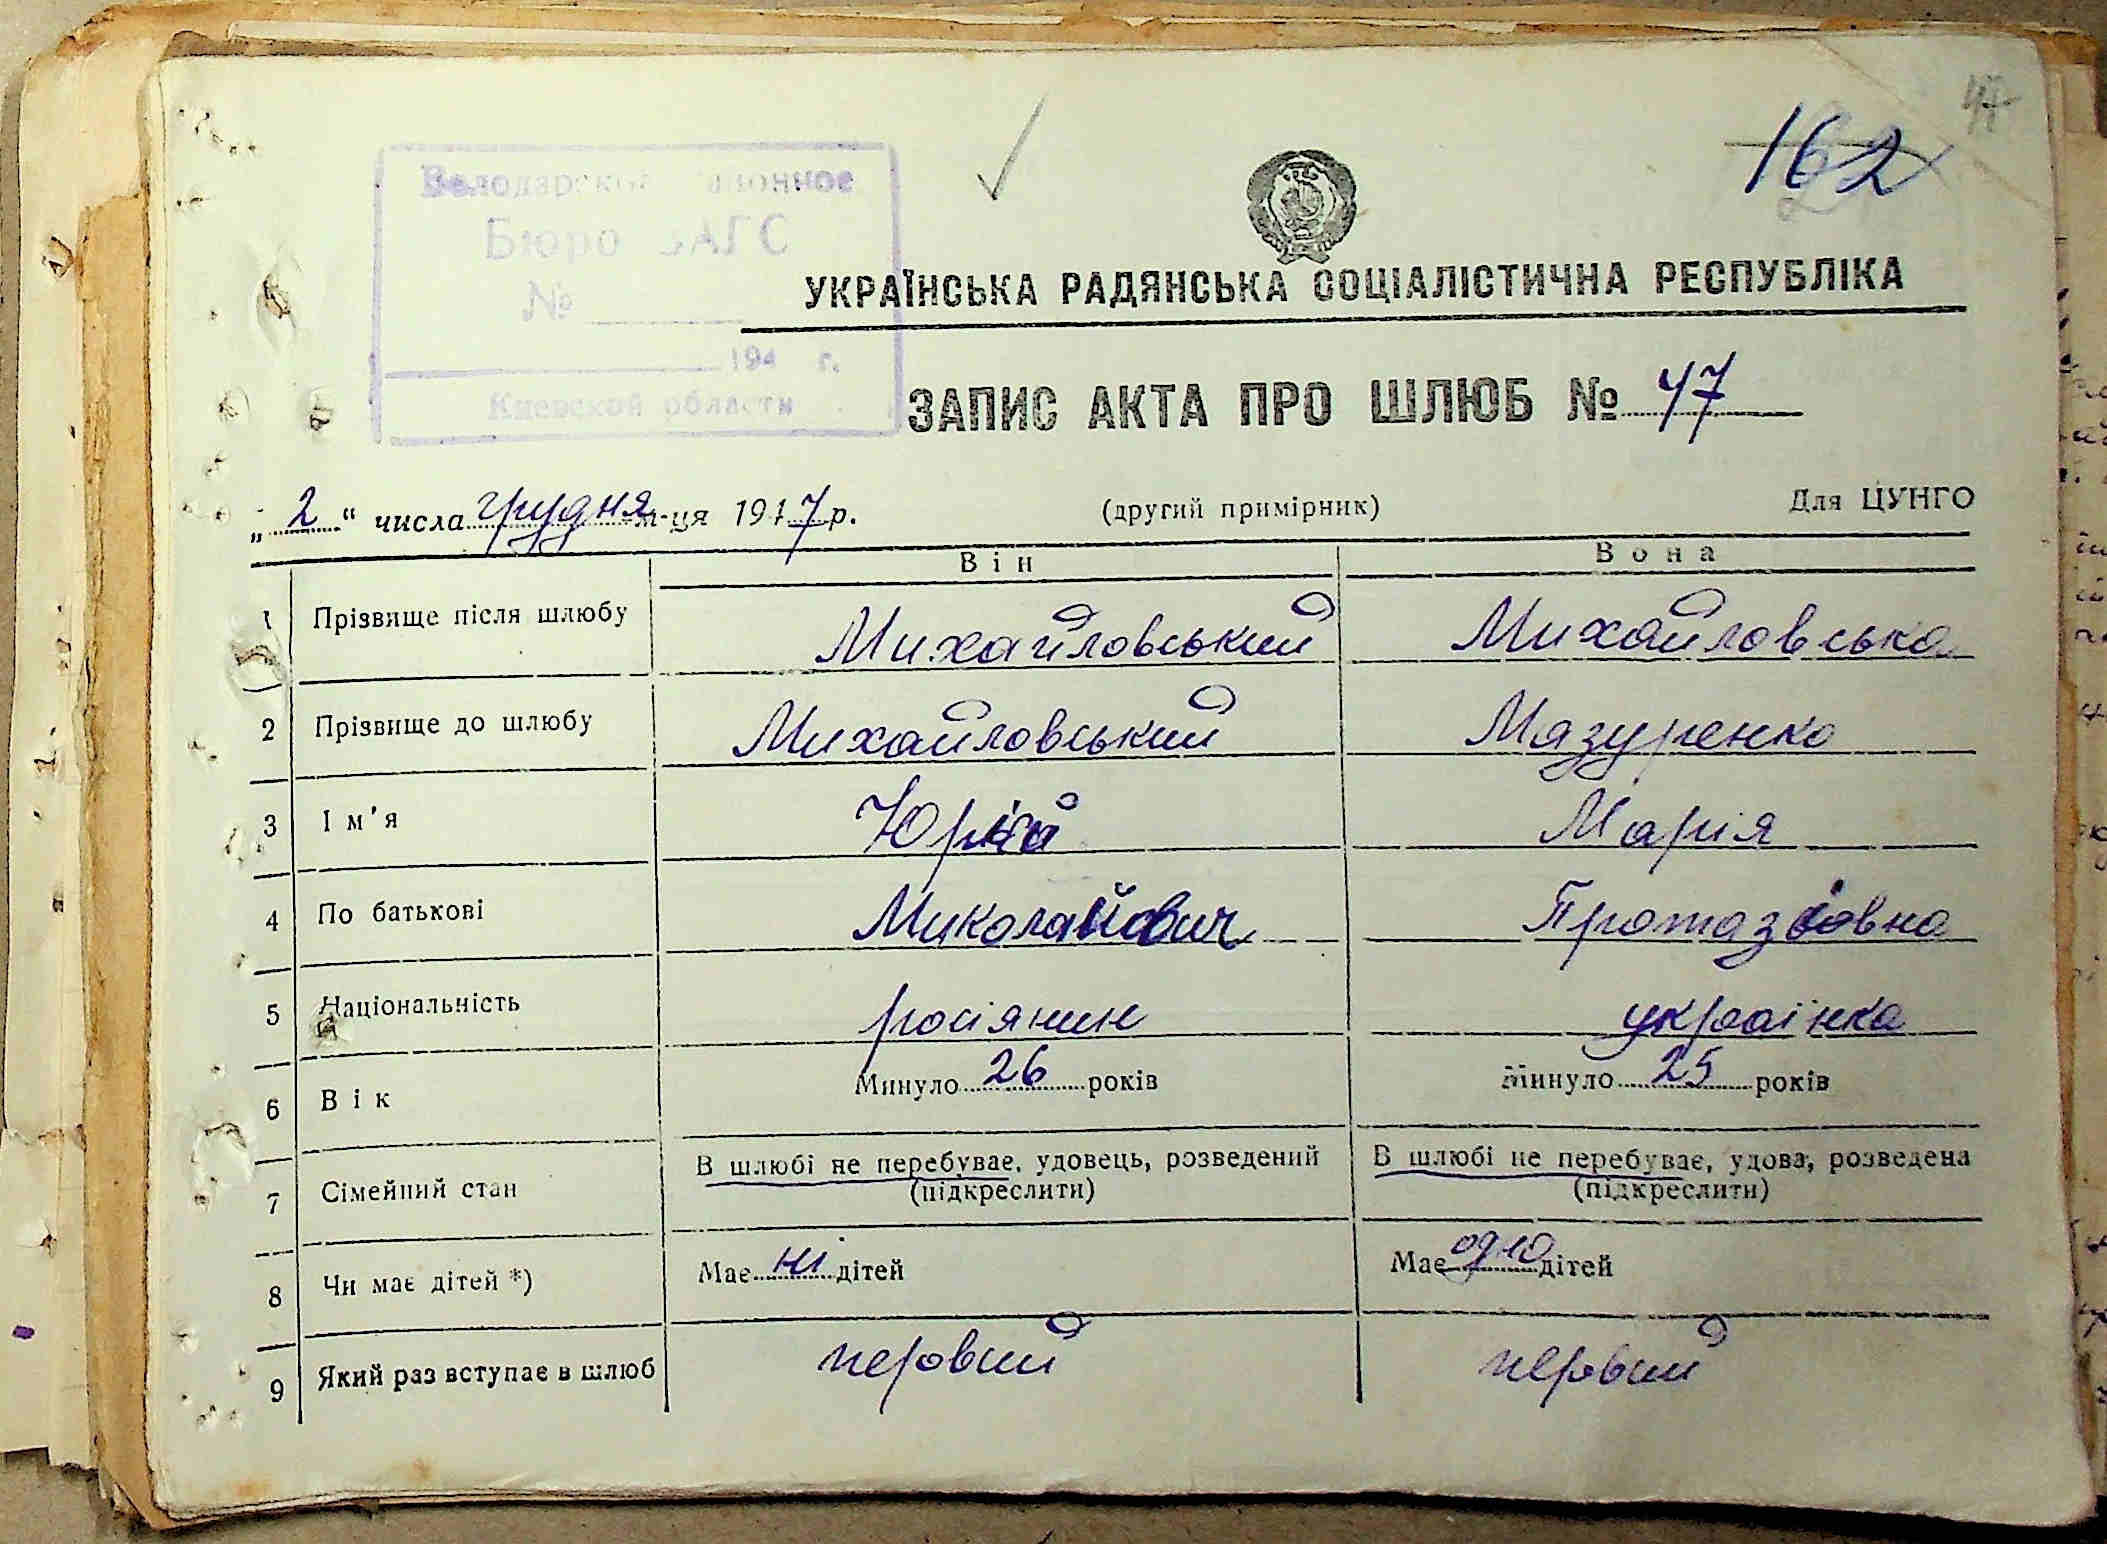 47
162
Володарское районное
Бюро ЗАГС
№
194 г.
Киевской области
УКРАЇНСЬКА РАДЯНСЬКА СОЦІАЛІСТИЧНА РЕСПУБЛІКА
ЗАПИС АКТА ПРО ШЛЮБ № 47
„2“ числа грудня м-ця 1947 р. (другий примірник) Для ЦУНГО
Він Вона
1 Прізвище після шлюбу Михайловський Михайловська
2 Прізвище до шлюбу Михайловський Мазуренко
3 Ім'я Юрій Марія
4 По батькові Миколайович Протазіовна
5 Національність росіянин українка
6 Вік Минуло 26 років Минуло 25 років
7 Сімейний стан В шлюбі не перебуває, удовець, розведений В шлюбі не перебуває, удова, розведена
(підкреслити) (підкреслити)
8 Чи має дітей *) Має ні дітей Має одно дітей
9 Який раз вступає в шлюб первий первий